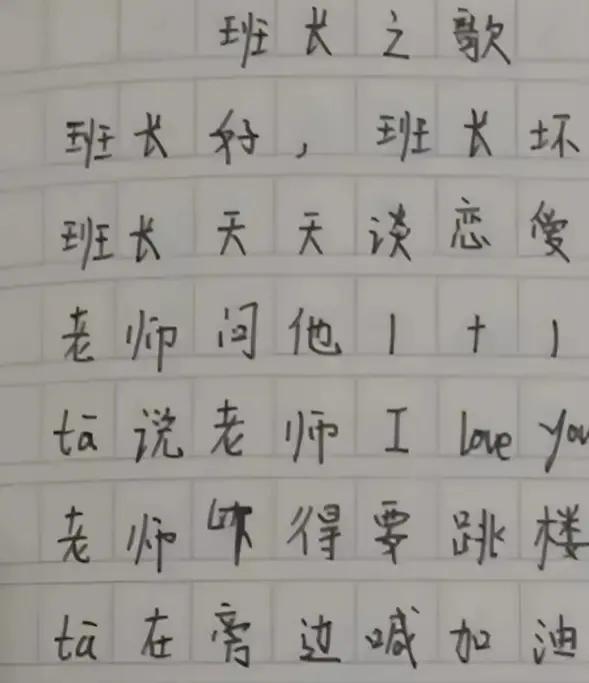 班长之歌
班长好，班长坏
班长天天谈恋爱
老师问他1+1
tā说老师I love you
老师吓得要跳楼
tā在旁边喊加油